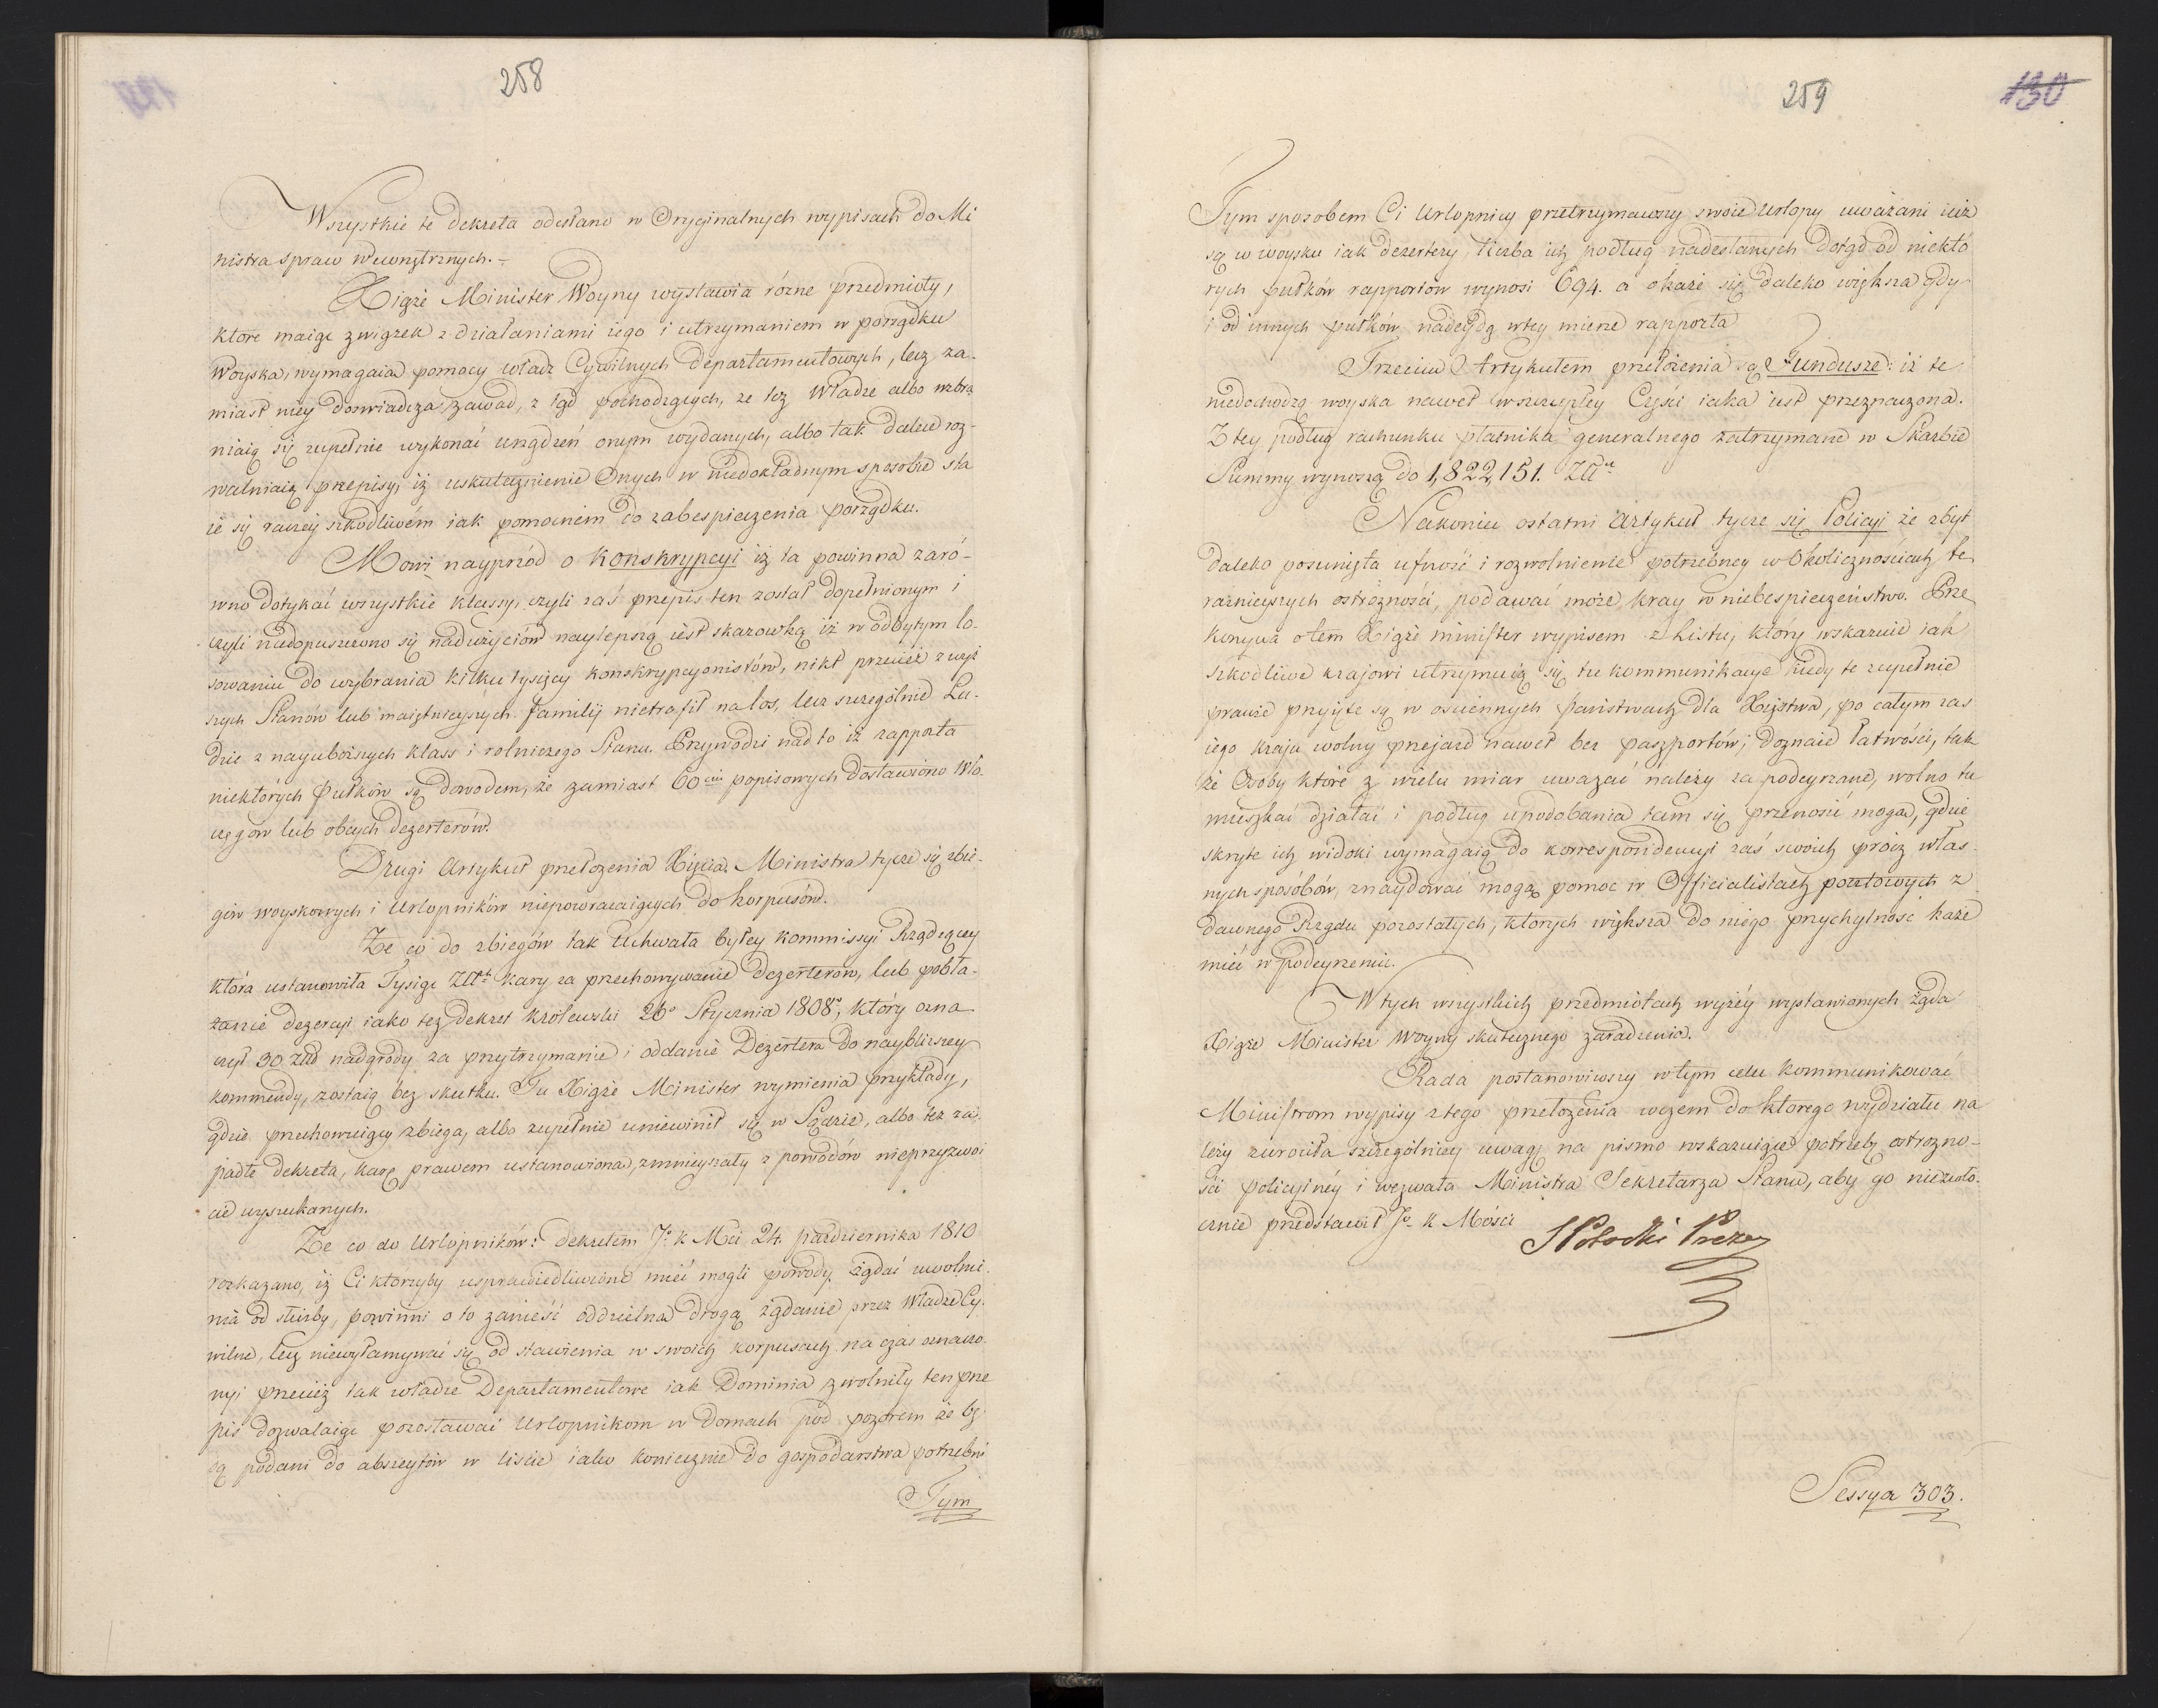 258
Wszystkie te dekreta odesłano w Oryginalnych wypisach do Mi
nistra spraw Wewnętrznych.-
Xiąże Minister Woyny wystawia różne przedmioty,
które maiąc związek z działaniami iego i utrzymaniem w porządku
Woyska, wymagaią pomocy władz Cywilnych Departamentowych, lecz za-
miast niey doswiadcza zawad, z tąd pochodzących, że też Władze albo wzbra
niaią się zupełnie wykonać urządzeń onym wydanych, albo tak dalece roz-
walniaią przepisy, iż uskutecznienie Onych w niedokładnym sposobie sta
ie się raczéy szkodliwém iak pomocnem do zabespieczenia porządku.
Mowi nayprzód o Konskrypcyi iż ta powinna zaró-
wno dotykać wszystkie klassy, czyli zaś przepis ten został dopełnionym i
czyli niedopuszczono się nadużyciów naylepszą iest skazowką iż w odbytym lo-
sowaniu do wybrania kilku tysięcy konskrypcyonistów, nikt przecież z wyż
szych Stanów lub maiętnieyszych familij nietrafił na los, lecz szczególnie Lu-
dzie z nayuboższych klass i rolniczego Stanu. Przywodzi nad to iż rapporta
niektórych Pułków są dowodem, że zamiast 60ciu popisowych Dostawiono Wło-
cęgów lub obcych Dezerterów.
Drugi Artykuł przełożenia Xięcia Ministra tycze się zbie-
gów woyskowych i Urlopników niepowracaiących do korpusów.
Że co do zbiegów tak Uchwała byłey Kommissyi Rządzącey
która ustanowiła Tysiąc Złt kary za przechowywanie Dezerterów, lub pobła-
żanie dezercyi iako też dekret Królewski 26o Stycznia 1808o, który ozna
czył 30 Złt nadgrody za przytrzymanie i oddanie Dezertera do naybliższey
kommendy, zostaią bez skutku. Tu Xiąże Minister wymienia przykłady,
gdzie przechowuiący zbiega, albo zupełnie uniewinił się w Sądzie, albo też za-
padłe dekreta, karę prawem ustanowioną, zmnieyszały z powodów nieprzyzwoi
cie wyszukanych.
Że co do Urlopników: dekretem Jo K Mci 24. października 1810
rozkazano, iż Ci którzyby usprawiedliwione mieć mogli powody żądać uwolnie
nia od służby, powinni o to zanieść oddzielną drogą żądanie przez Władze Cy-
wilne, lecz niewyłamywać się od stawienia w swoich korpusach na czas oznaczo
nyi przecież tak władze Departamentowe iak Dominia zwolniły ten prze
pis dozwalaiąc pozostawać Urlopnikom w domach pod pozorem że by
są podani do abszeytów w liście iako koniecznie do gospodarstwa potrzebni
Tym
259
130
Tym sposobem Ci Urlopnicy przetrzymawszy swoie Urlopy uważani iuż
są w woysku iak dezertery, liczba ich podług nadesłanych dotąd od niektó
rych pułków rapportów wynosi 694. a okaże się daleko większa gdy
i od innych pułków nadeydą w tey mierze rapporta
Trzecim Artykułem przełożenia są Fundusze: iż te
niedochodzą woyska nawet w szczupłey Części iaka iest przeznaczona.
Z tey podług rachunku płatnika generalnego zatrzymane w Skarbie
Summy wynoszą do 1,822,151. Złt
Nakoniec ostatni Artykuł tycze się Policyi że zbyt
daleko posunięta ufność i rozwolnienie potrzebney w Okolicznościach te
raznieyszych ostróżności, podawać może kray w niebespieczeństwo. Prze
konywa o tem Xiąże minister wypisem z Listu, który wskazuie iak
szkodliwe krajowi utrzymuią się tu kommunikacye kiedy te zupełnie
prawie przyięte są w ościennych państwach dla Xięstwa, po całym zas
iego kraju wolny przejazd nawet bez paszportów, doznaie łatwości, tak
że Osoby które z wielu miar uważać należy za podeyrzane, wolno tu
mieszkać działać i podług upodobania tam się przenosić mogą, gdzie
skryte ich widoki wymagaią do korrespondencyi zaś swoich prócz włas-
nych sposóbów, znaydować mogą pomoc w Officialistach pocztowych z
dawnego Rządu pozostałych, których większa do niego przychylność każe
mieć w podeyrzeniu.
W tych wszystkich przedmiotach wyżéy wystawionych żąda
Xiąże Minister Woyny skutecznego zaradzenia.
Rada postanowiwszy w tym celu kommunikować
Ministrom wypisy z tego przełożenia wczem do ktorego wydziału na
leży zwrociła szczególniey uwagę na pismo wskazuiące potrzebę ostrożno-
ści policyinéy i wezwała Ministra Sekretarza Stanu, aby go niezwło-
cznie przedstawił Jo K Mości
SPotocki Prezes
Sessya 303.